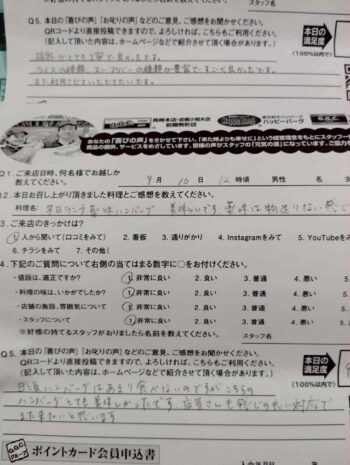 スタッフ名
Q5. 本日の「喜びの声」「お叱りの声」などのご意見、ご感想をお聞かせください。
QRコードより直接投稿できますので、よろしければ、こちらもご利用ください。
(記入して頂いた内容は、ホームページなどで紹介させて頂く場合があります。)
本日の
満足度
(100%以内で)
接客がとても丁寧で良かったです。
ライスの種類、スープバーの種類が豊富ですごく良かったです。
また利用させていただきたいです。
G.G.C.
高崎本店・前橋小相木店
前橋駒形店
ハッピーパーク
G.G.C.
あなたの「喜びの声」をきかせて下さい。「来た時よりも幸せに」という経営理念をもとにスタッフ
商品の提供、サービスをめざしています。皆様の声がスタッフの「元気の源」になっています。ご協力
Q1. ご来店日時、何名様でお越しか
教えてください。
9月 10日 12時頃 男性 名 女
2. 本日お召し上がり頂きました料理とご感想を教えてください。
料理名: 平日ランチ薬味ハンバーグ 美味しいです 薬味は物送りない感じ
3. ご来店のきっかけは?
1. 人から聞いて(口コミをみて) 2. 看板 3. 通りがかり 4. Instagramをみて 5. YouTubeを
6. チラシをみて 7. その他(
4. 下記のご質問について右側の当てはまる数字に○をお付けください。
・値段は、適正ですか? 1. 非常に良い 2. 良い 3. 普通 4. 悪い 5.
・料理の味は、いかがでしたか? 1. 非常に良い 2. 良い 3. 普通 4. 悪い 5.
・店舗の施設、雰囲気について 1. 非常に良い 2. 良い 3. 普通 4. 悪い 5.
・スタッフについて 1. 非常に良い 2. 良い 3. 普通 4. 悪い 5.
※好感の持てるスタッフがおりましたら名前を教えてください。 スタッフ名
Q5. 本日の「喜びの声」「お叱りの声」などのご意見、ご感想をお聞かせください。
QRコードより直接投稿できますので、よろしければ、こちらもご利用ください。
(記入して頂いた内容は、ホームページなどで紹介させて頂く場合があります。)
本日の
満足度
(100%以内で)
日頃ハンバーグはあまり食べないのですがこちらの
ハンバーグとても美味しかったです 店員さんも感じの良い対応で
また来たいと思います
G.G.C.
グループ
ポイントカード会員申込書
入会年月日 年